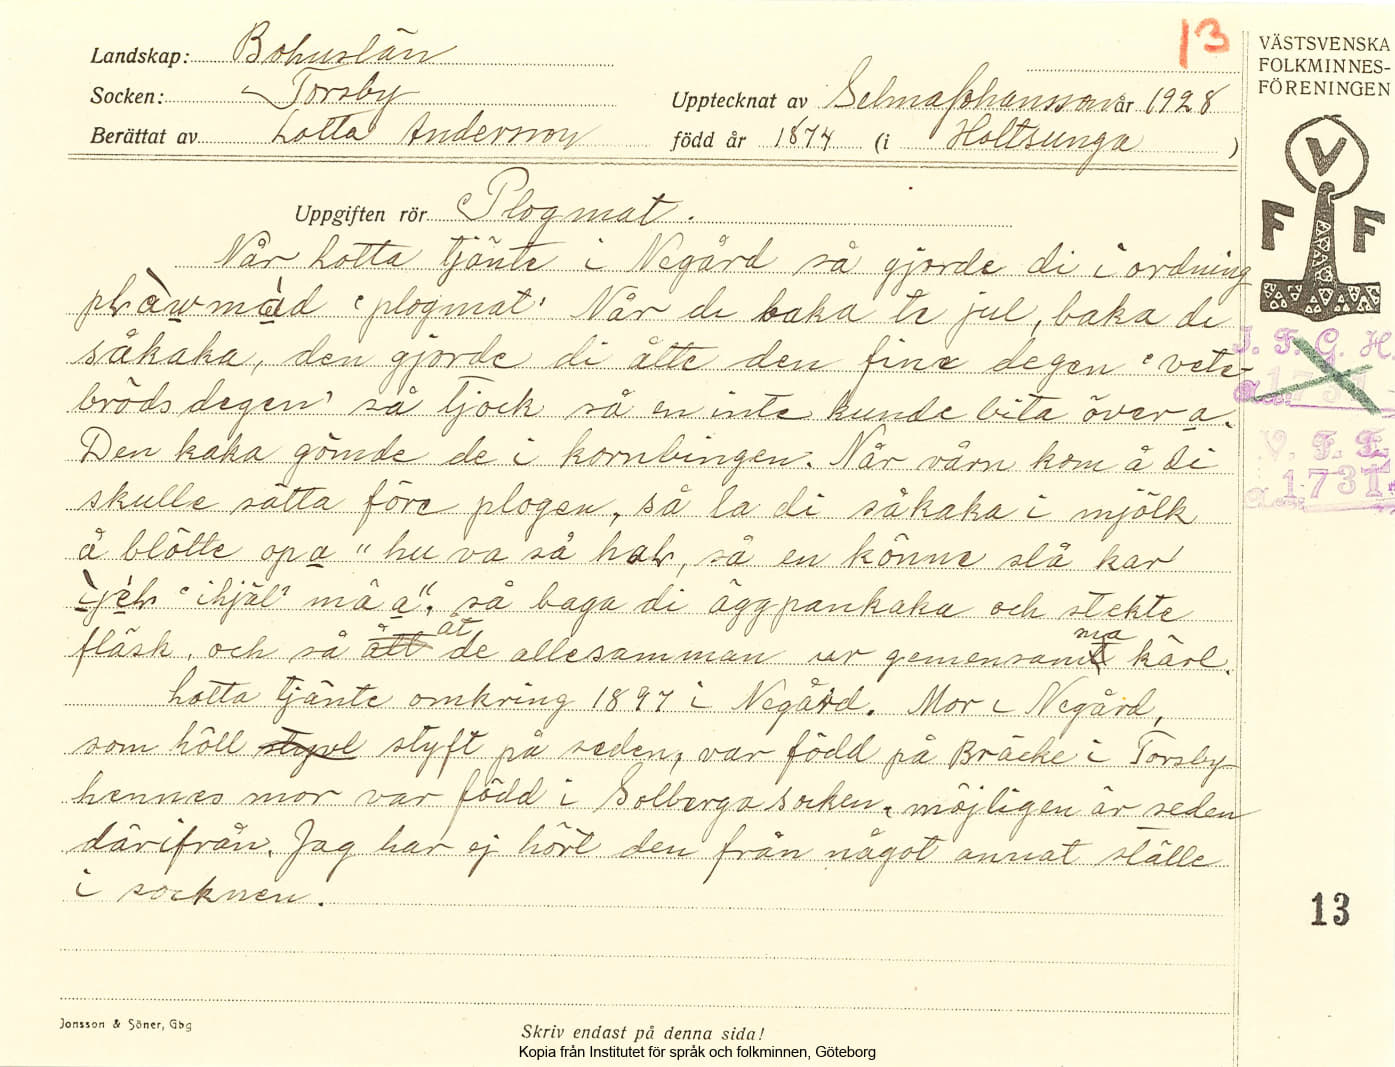 13
Landskap: Bohuslän
Socken: Torsby
Berättat av Lotta Andersson
Upptecknat av Selma Johansson år 1928
född år 1874 (i Holtsunga )
VÄSTSVENSKA
FOLKMINNES-
FÖRENINGEN
V
F F
Uppgiften rör Plogmat.
När Lotta tjänte i Negård så gjorde di i ordning
plàwmàd 'plogmat' När de baka te jul, baka de
såkaka, den gjorde di åtte den fine degen 'vete-
brödsdegen' så tjock så en inte kunde bita över a.
Den kaka gömde de i kornbingen. När vårn kom å di
skulle sätta före plogen, så la di såkaka i mjölk
å blötte opa "hu va så hal, så en könne slå kar
ìjèl 'ihjäl' mä a", så baga di äggpankaka och stekte
fläsk, och så ått åt de allesamman ur gemensamt ma kärl.
Lotta tjänte omkring 1897 i Negård. Mor i Negård,
som höll styvt styft på seden, var född på Bräcke i Torsby
hennes mor var född i Solberga socken, möjligen är seden
därifrån. Jag har ej hört den från något annat ställe
i socknen.
I. F. G. H.
V. F. F.
1731
13
Jonsson & Söner, Gbg
Skriv endast på denna sida!
Kopia från Institutet för språk och folkminnen, Göteborg